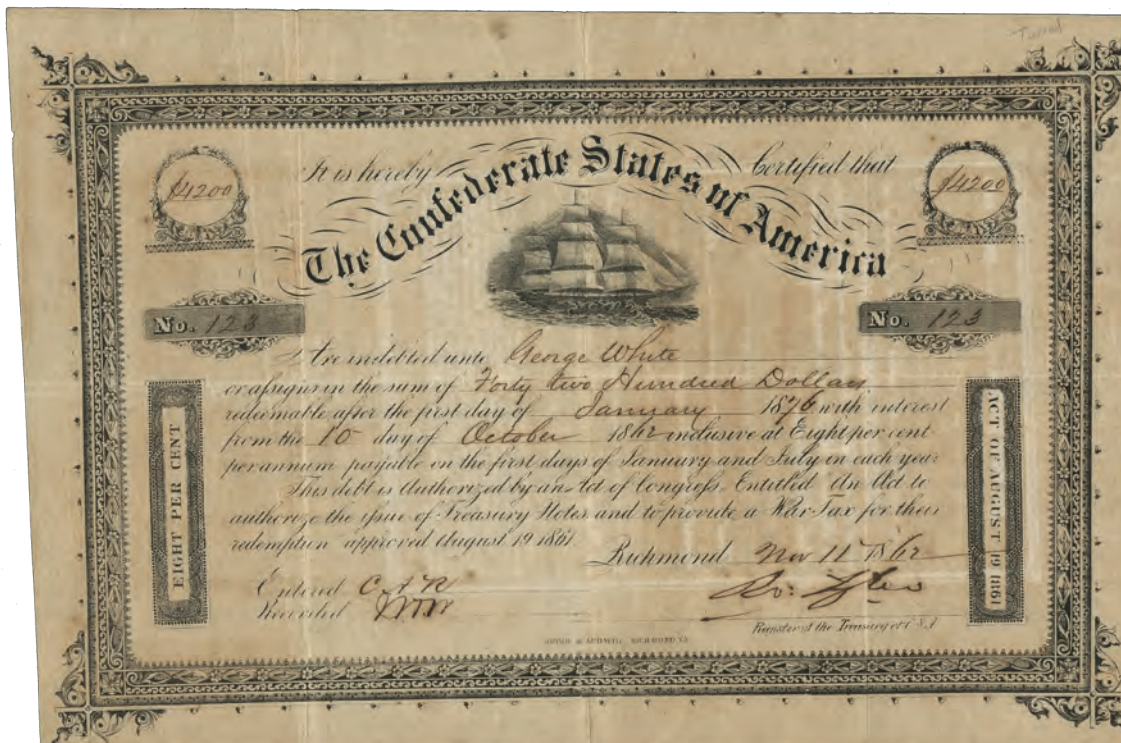 Turned
It is hereby Certified that
$4200
$4200
The Confederate States of America
No. 123
No. 123
Are indebted unto George White
or assigns in the sum of Forty two Hundred Dollars
redeemable after the first day of January 1876 with interest
from the 10 day of October 1862 inclusive at Eight per cent
per annum payable on the first days of January and July in each year
This debt is Authorized by an Act of Congress, Entitled An Act to
authorize the issue of Treasury Notes, and to provide a War Tax for their
redemption approved August 19 1861.
Richmond Nov 11 1862
EIGHT PER CENT
ACT OF AUGUST 19 1861
Entered C A R
Recorded
Ro: Tyler
Register of the Treasury of C.S.A
RICHMOND VA